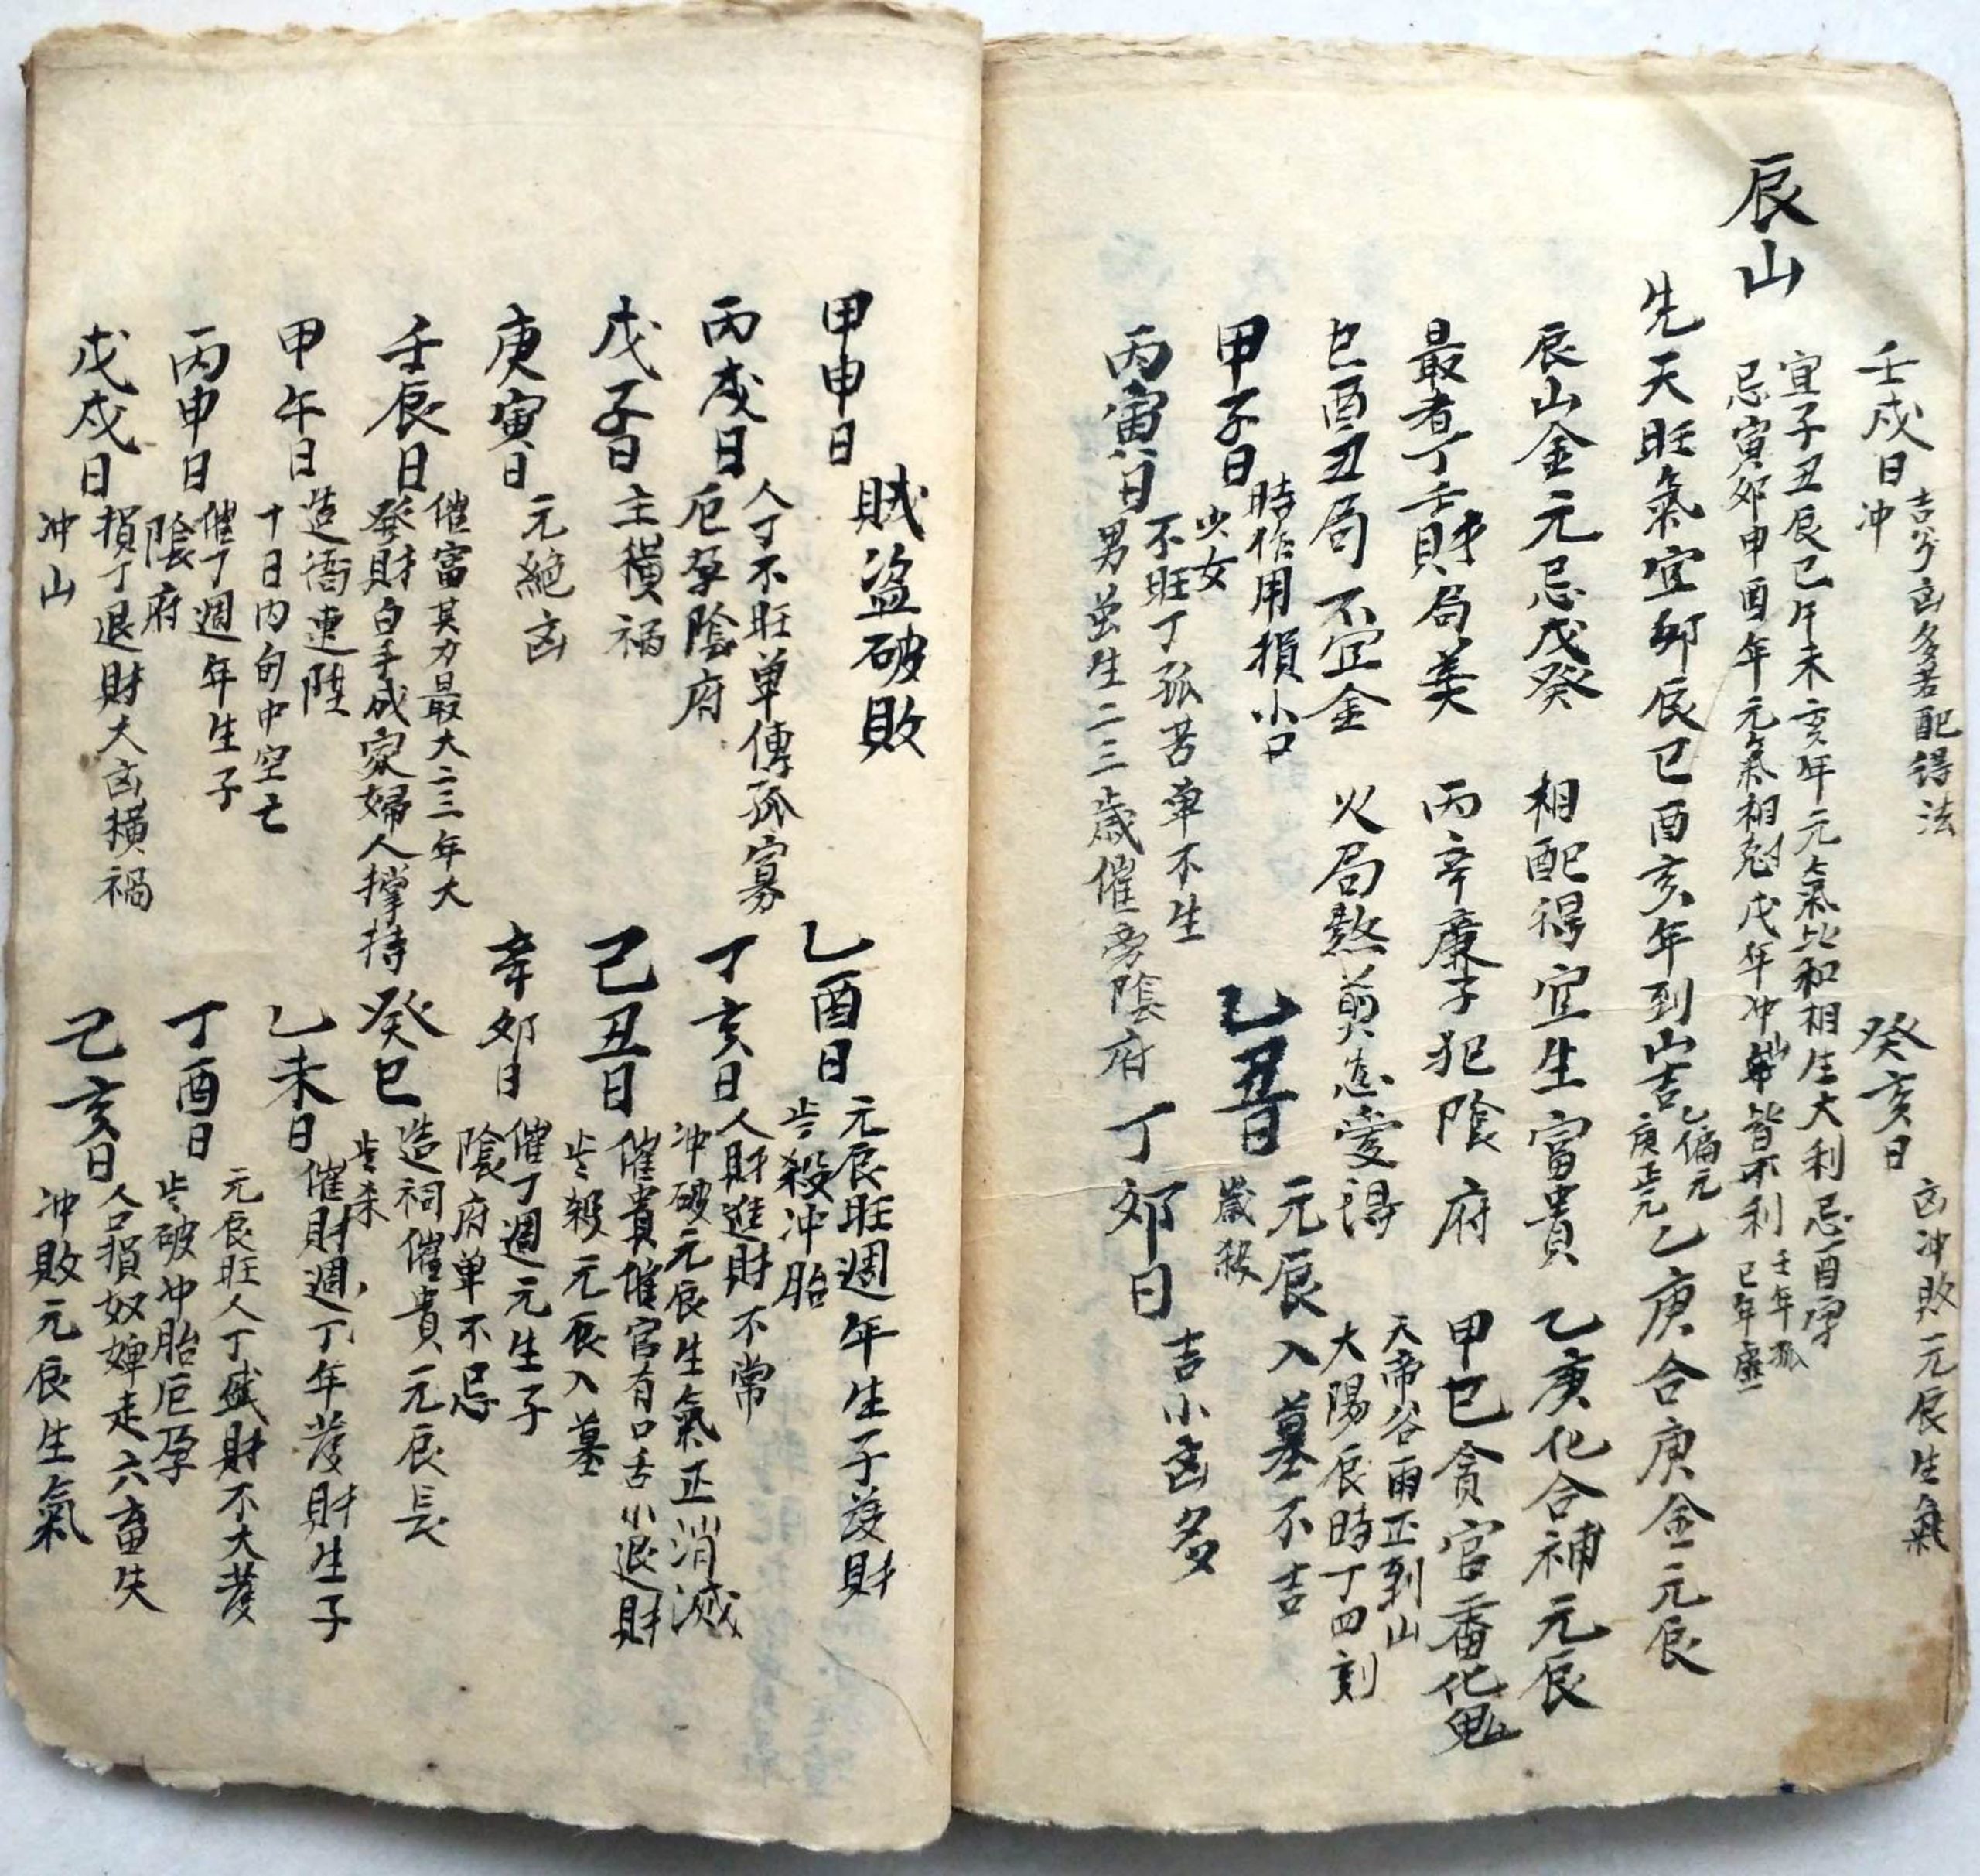 壬戌日
吉少凶多若配得法
冲
癸亥日
凶冲敗元辰生氣
辰山
宜子丑辰巳午未亥年元氣比和相生大利忌酉
忌寅卯申酉年元氣相尅戌年冲山年皆不利
壬年孤
巳年虛
先天旺氣宜卯辰巳酉亥年到山吉
乙偏元
庚正元
乙庚合庚金元辰
辰山金元忌戊癸
相配得宜生富貴
乙庚化合補元辰
最者丁壬財局美
丙辛廉子犯陰府
甲巳貪官番化鬼
巳酉丑局不宜金
火局熬煎造愛得
天帝谷雨正到山
大陽辰時丁四刻
甲子日
時作用損小口
少女
乙丑日
元辰入墓不吉
歲殺
丙寅日
不旺丁孤苦單不生
男當生二三歲催旁陰府
丁卯日
吉小凶多
甲申日
賊盜破敗
乙酉日
元辰旺週年生子發財
岦殺冲胎
丙戌日
人丁不旺單傳孤寡
厄孕陰府
丁亥日
人財進財不常
冲破元辰生氣正消滅
戊子日
主橫禍
己丑日
催貴催官有口舌小退財
岦殺元辰入墓
庚寅日
元絕凶
辛卯日
催丁週元生子
陰府單不忌
壬辰日
催富其力最大二三年大
發財白手成家婦人撑持
癸巳
造祠催貴元辰長
岦杀
甲午日
造衙連陞
十日內旬中空亡
乙未日
催財週丁年發財生子
丙申日
催丁週年生子
陰府
丁酉日
元辰旺人丁盛財不大發
岦破冲胎厄孕
戊戌日
損丁退財大凶橫禍
冲山
己亥日
人口損奴婢走六畜失
冲敗元辰生氣